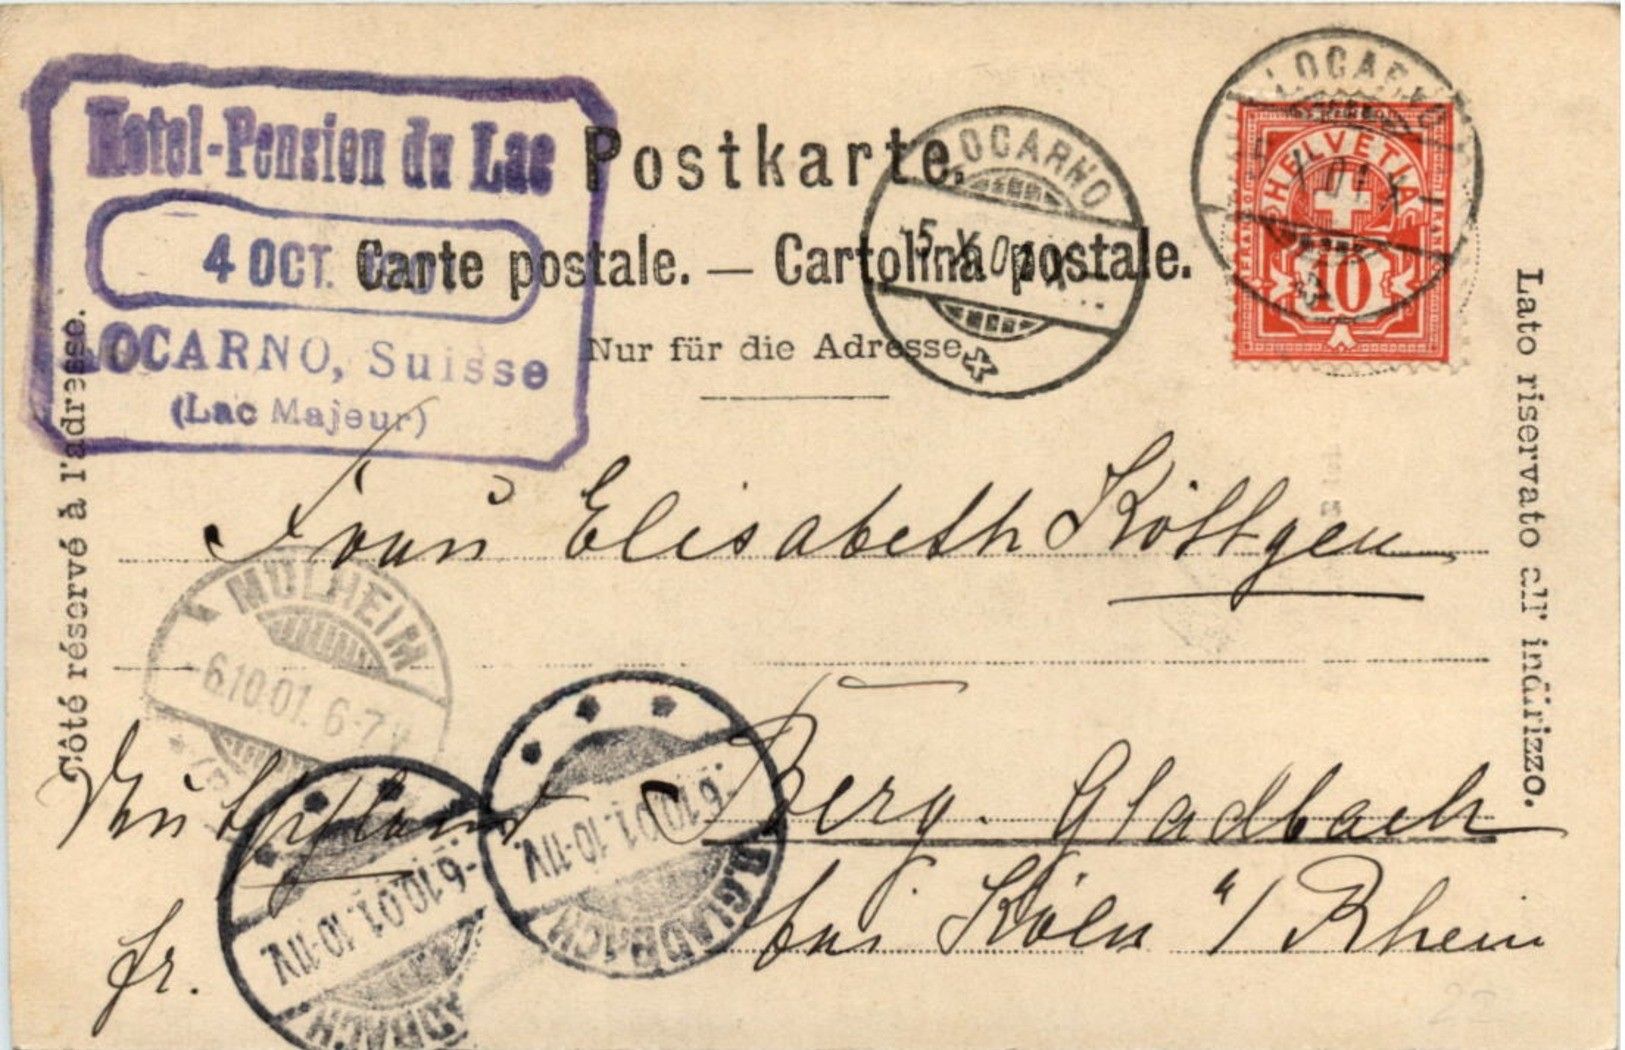 Hotel-Pension du Lac
4 OCT.
LOCARNO, Suisse
(Lac Majeur)
Postkarte.
Carte postale. — Cartolina postale.
Nur für die Adresse
LOCARNO
5 X 01
LOCARNO
HELVETIA
10
Côté réservé à l'adresse.
Lato riservato all' indirizzo.
Frau Elisabeth Köttgen
MÜLHEIM
6.10.01. 6-7V
Berg. Gladbach
bei Köln a/Rhein
Deutschland
fr.
B.GLADBACH
-6.10.01. 10-11V.
GLADBACH
-6.10.01. 10-11V.